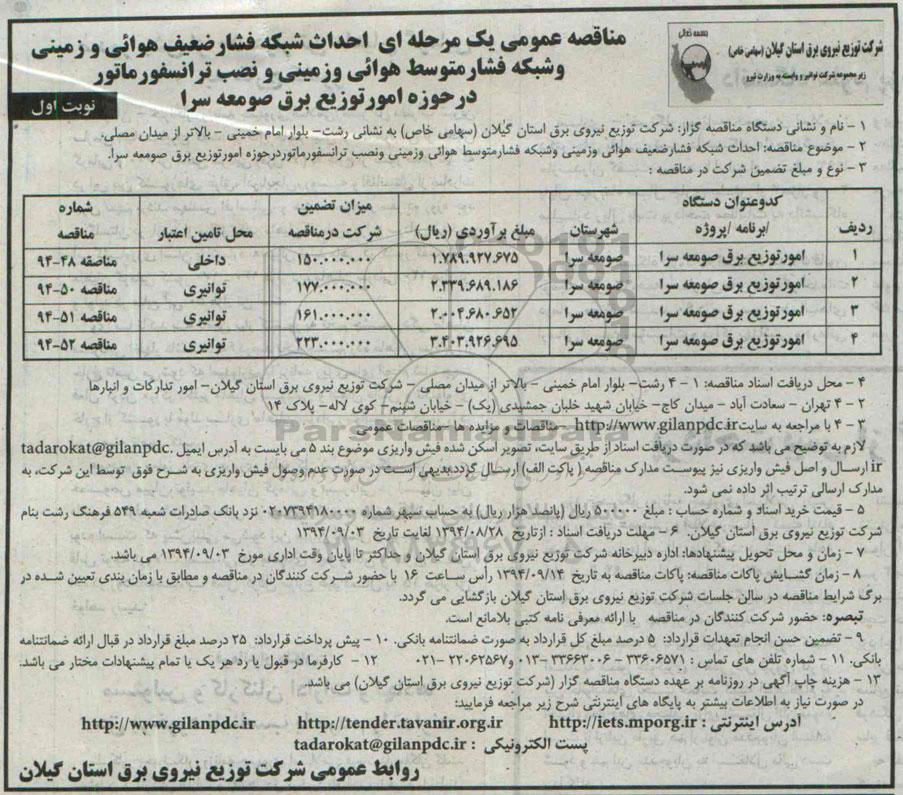 بسمه تعالی
شرکت توزیع نیروی برق استان گیلان (سهامی خاص)
زیر مجموعه شرکت توانیر و وابسته به وزارت نیرو
مناقصه عمومی یک مرحله ای احداث شبکه فشارضعیف هوائی و زمینی
وشبکه فشارمتوسط هوائی وزمینی و نصب ترانسفورماتور
درحوزه امورتوزیع برق صومعه سرا
نوبت اول
۱ - نام و نشانی دستگاه مناقصه گزار: شرکت توزیع نیروی برق استان گیلان (سهامی خاص) به نشانی رشت- بلوار امام خمینی - بالاتر از میدان مصلی.
۲ - موضوع مناقصه: احداث شبکه فشارضعیف هوائی وزمینی وشبکه فشارمتوسط هوائی وزمینی ونصب ترانسفورماتوردرحوزه امورتوزیع برق صومعه سرا.
۳ - نوع و مبلغ تضمین شرکت در مناقصه :
ردیف | کدوعنوان دستگاه /برنامه /پروژه | شهرستان | مبلغ برآوردی (ریال) | میزان تضمین شرکت درمناقصه | محل تامین اعتبار | شماره مناقصه
۱ | امورتوزیع برق صومعه سرا | صومعه سرا | ۱.۷۸۹.۹۲۷.۶۷۵ | ۱۵۰.۰۰۰.۰۰۰ | داخلی | مناقصه ۴۸-۹۴
۲ | امورتوزیع برق صومعه سرا | صومعه سرا | ۲.۳۳۹.۶۸۹.۱۸۶ | ۱۷۷.۰۰۰.۰۰۰ | توانیری | مناقصه ۵۰-۹۴
۳ | امورتوزیع برق صومعه سرا | صومعه سرا | ۲.۰۰۴.۶۸۰.۶۵۲ | ۱۶۱.۰۰۰.۰۰۰ | توانیری | مناقصه ۵۱-۹۴
۴ | امورتوزیع برق صومعه سرا | صومعه سرا | ۳.۴۰۳.۹۲۶.۶۹۵ | ۲۲۳.۰۰۰.۰۰۰ | توانیری | مناقصه ۵۲-۹۴
۴ - محل دریافت اسناد مناقصه: ۱ - ۴ رشت- بلوار امام خمینی - بالاتر از میدان مصلی - شرکت توزیع نیروی برق استان گیلان- امور تدارکات و انبارها
۲ - ۴ تهران - سعادت آباد - میدان کاج- خیابان شهید خلبان جمشیدی (یک) - خیابان شبنم- کوی لاله- پلاک ۱۴
۳ - ۴ با مراجعه به سایت http://www.gilanpdc.ir -مناقصات و مزایده ها -مناقصات عمومی
لازم به توضیح می باشد که در صورت دریافت اسناد از طریق سایت، تصویر اسکن شده فیش واریزی موضوع بند ۵ می بایست به آدرس ایمیل tadarokat@gilanpdc.
ir ارسال و اصل فیش واریزی نیز پیوست مدارک مناقصه ( پاکت الف) ارسال گردد.بدیهی است در صورت عدم وصول فیش واریزی به شرح فوق توسط این شرکت، به
مدارک ارسالی ترتیب اثر داده نمی شود.
۵ - قیمت خرید اسناد و شماره حساب : مبلغ ۵۰۰۰۰۰ ریال (پانصد هزار ریال) به حساب سپهر شماره ۰۲۰۷۳۹۴۱۸۰۰۰۰ نزد بانک صادرات شعبه ۵۴۹ فرهنگ رشت بنام
شرکت توزیع نیروی برق استان گیلان. ۶ - مهلت دریافت اسناد : ازتاریخ ۱۳۹۴/۰۸/۲۸ لغایت تاریخ ۱۳۹۴/۰۹/۰۳
۷ - زمان و محل تحویل پیشنهادها: اداره دبیرخانه شرکت توزیع نیروی برق استان گیلان و حداکثر تا پایان وقت اداری مورخ ۱۳۹۴/۰۹/۰۳ می باشد.
۸ - زمان گشایش پاکات مناقصه: پاکات مناقصه به تاریخ ۱۳۹۴/۰۹/۱۴ رأس ساعت ۱۶ با حضور شرکت کنندگان در مناقصه و مطابق با زمان بندی تعیین شده در
برگ شرایط مناقصه در سالن جلسات شرکت توزیع نیروی برق استان گیلان بازگشایی می گردد.
تبصره: حضور شرکت کنندگان در مناقصه با ارائه معرفی نامه کتبی بلامانع است.
۹ - تضمین حسن انجام تعهدات قرارداد: ۵ درصد مبلغ کل قرارداد به صورت ضمانتنامه بانکی. ۱۰ - پیش پرداخت قرارداد: ۲۵ درصد مبلغ قرارداد در قبال ارائه ضمانتنامه
بانکی. ۱۱ - شماره تلفن های تماس : ۳۳۶۰۶۵۷۱ - ۳۳۶۶۳۰۰۶-۰۱۳ و۲۲۰۶۲۵۶۷ -۰۲۱ ۱۲ - کارفرما در قبول یا ردهر یک یا تمام پیشنهادات مختار می باشد.
۱۳ - هزینه چاپ آگهی در روزنامه بر عهده دستگاه مناقصه گزار (شرکت توزیع نیروی برق استان گیلان) می باشد.
در صورت نیاز به اطلاعات بیشتر به پایگاه های اینترنتی شرح زیر مراجعه فرمایید:
آدرس اینترنتی : http://iets.mporg.ir http://tender.tavanir.org.ir http://www.gilanpdc.ir
پست الکترونیکی : tadarokat@gilanpdc.ir
روابط عمومی شرکت توزیع نیروی برق استان گیلان
ParsNamadData